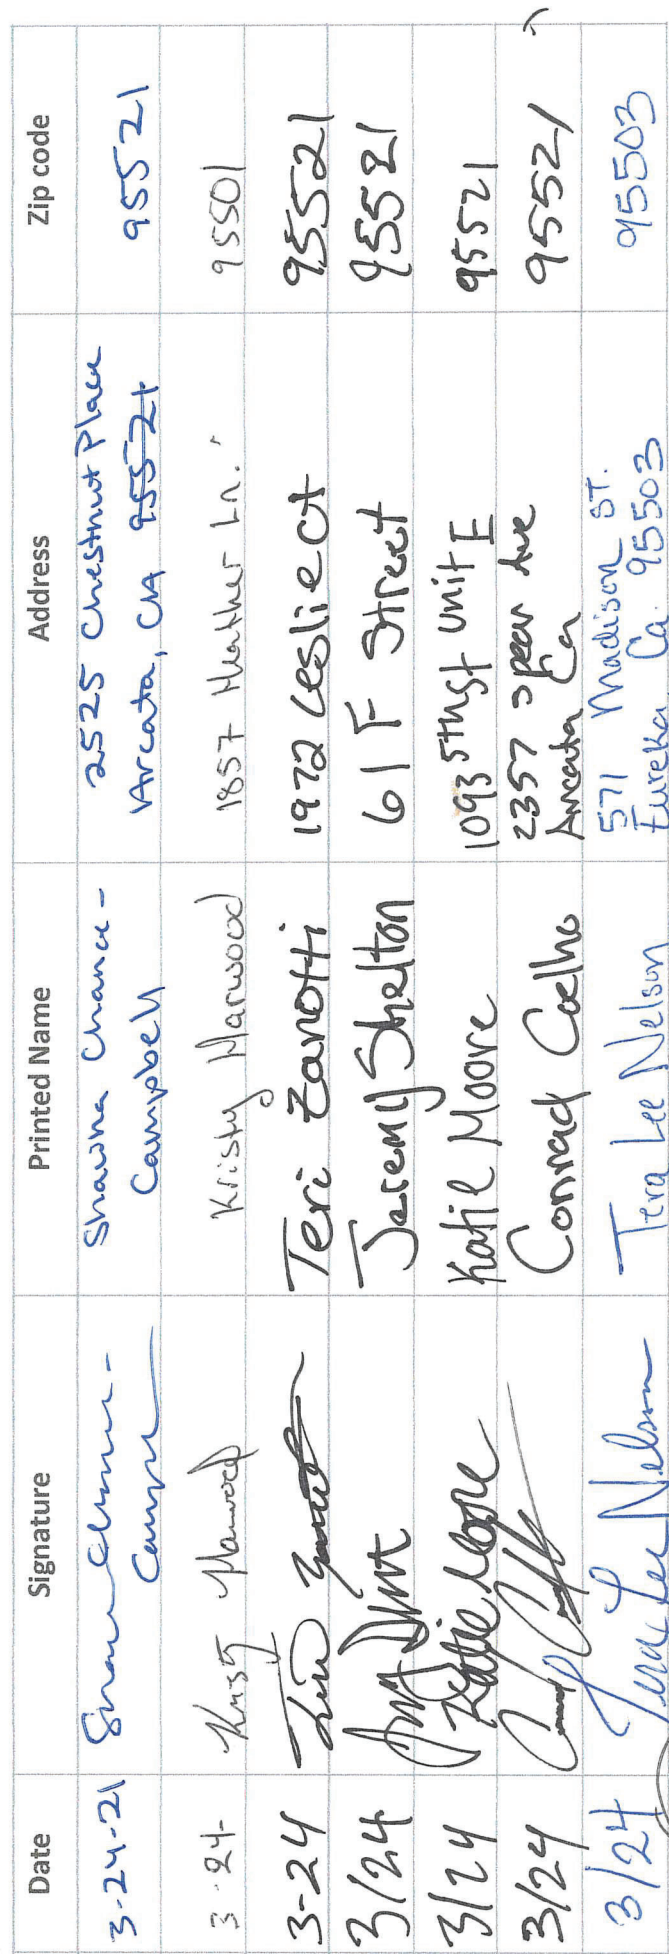 Date Signature Printed Name Address Zip code
3-24-21 Shawna Chance - Shawna Chance - 2525 Chestnut Place 95521
Campbell Arcata, CA 95521
3-24- Kristy Marwood Kristy Marwood 1857 Heather Ln. 95501
3-24 Teri Zanotti Teri Zanotti 1972 Leslie Ct 95521
3/24 Jeremy Shelton 61 F Street 95521
3/24 Katie Moore Katie Moore 1093 5th St Unit E 95521
3/24 Conrad Coelho 2357 Spear Ave 95521
Arcata Ca
3/24 Tera Lee Nelson Tera Lee Nelson 571 Madison ST. 95503
Eureka Ca. 95503